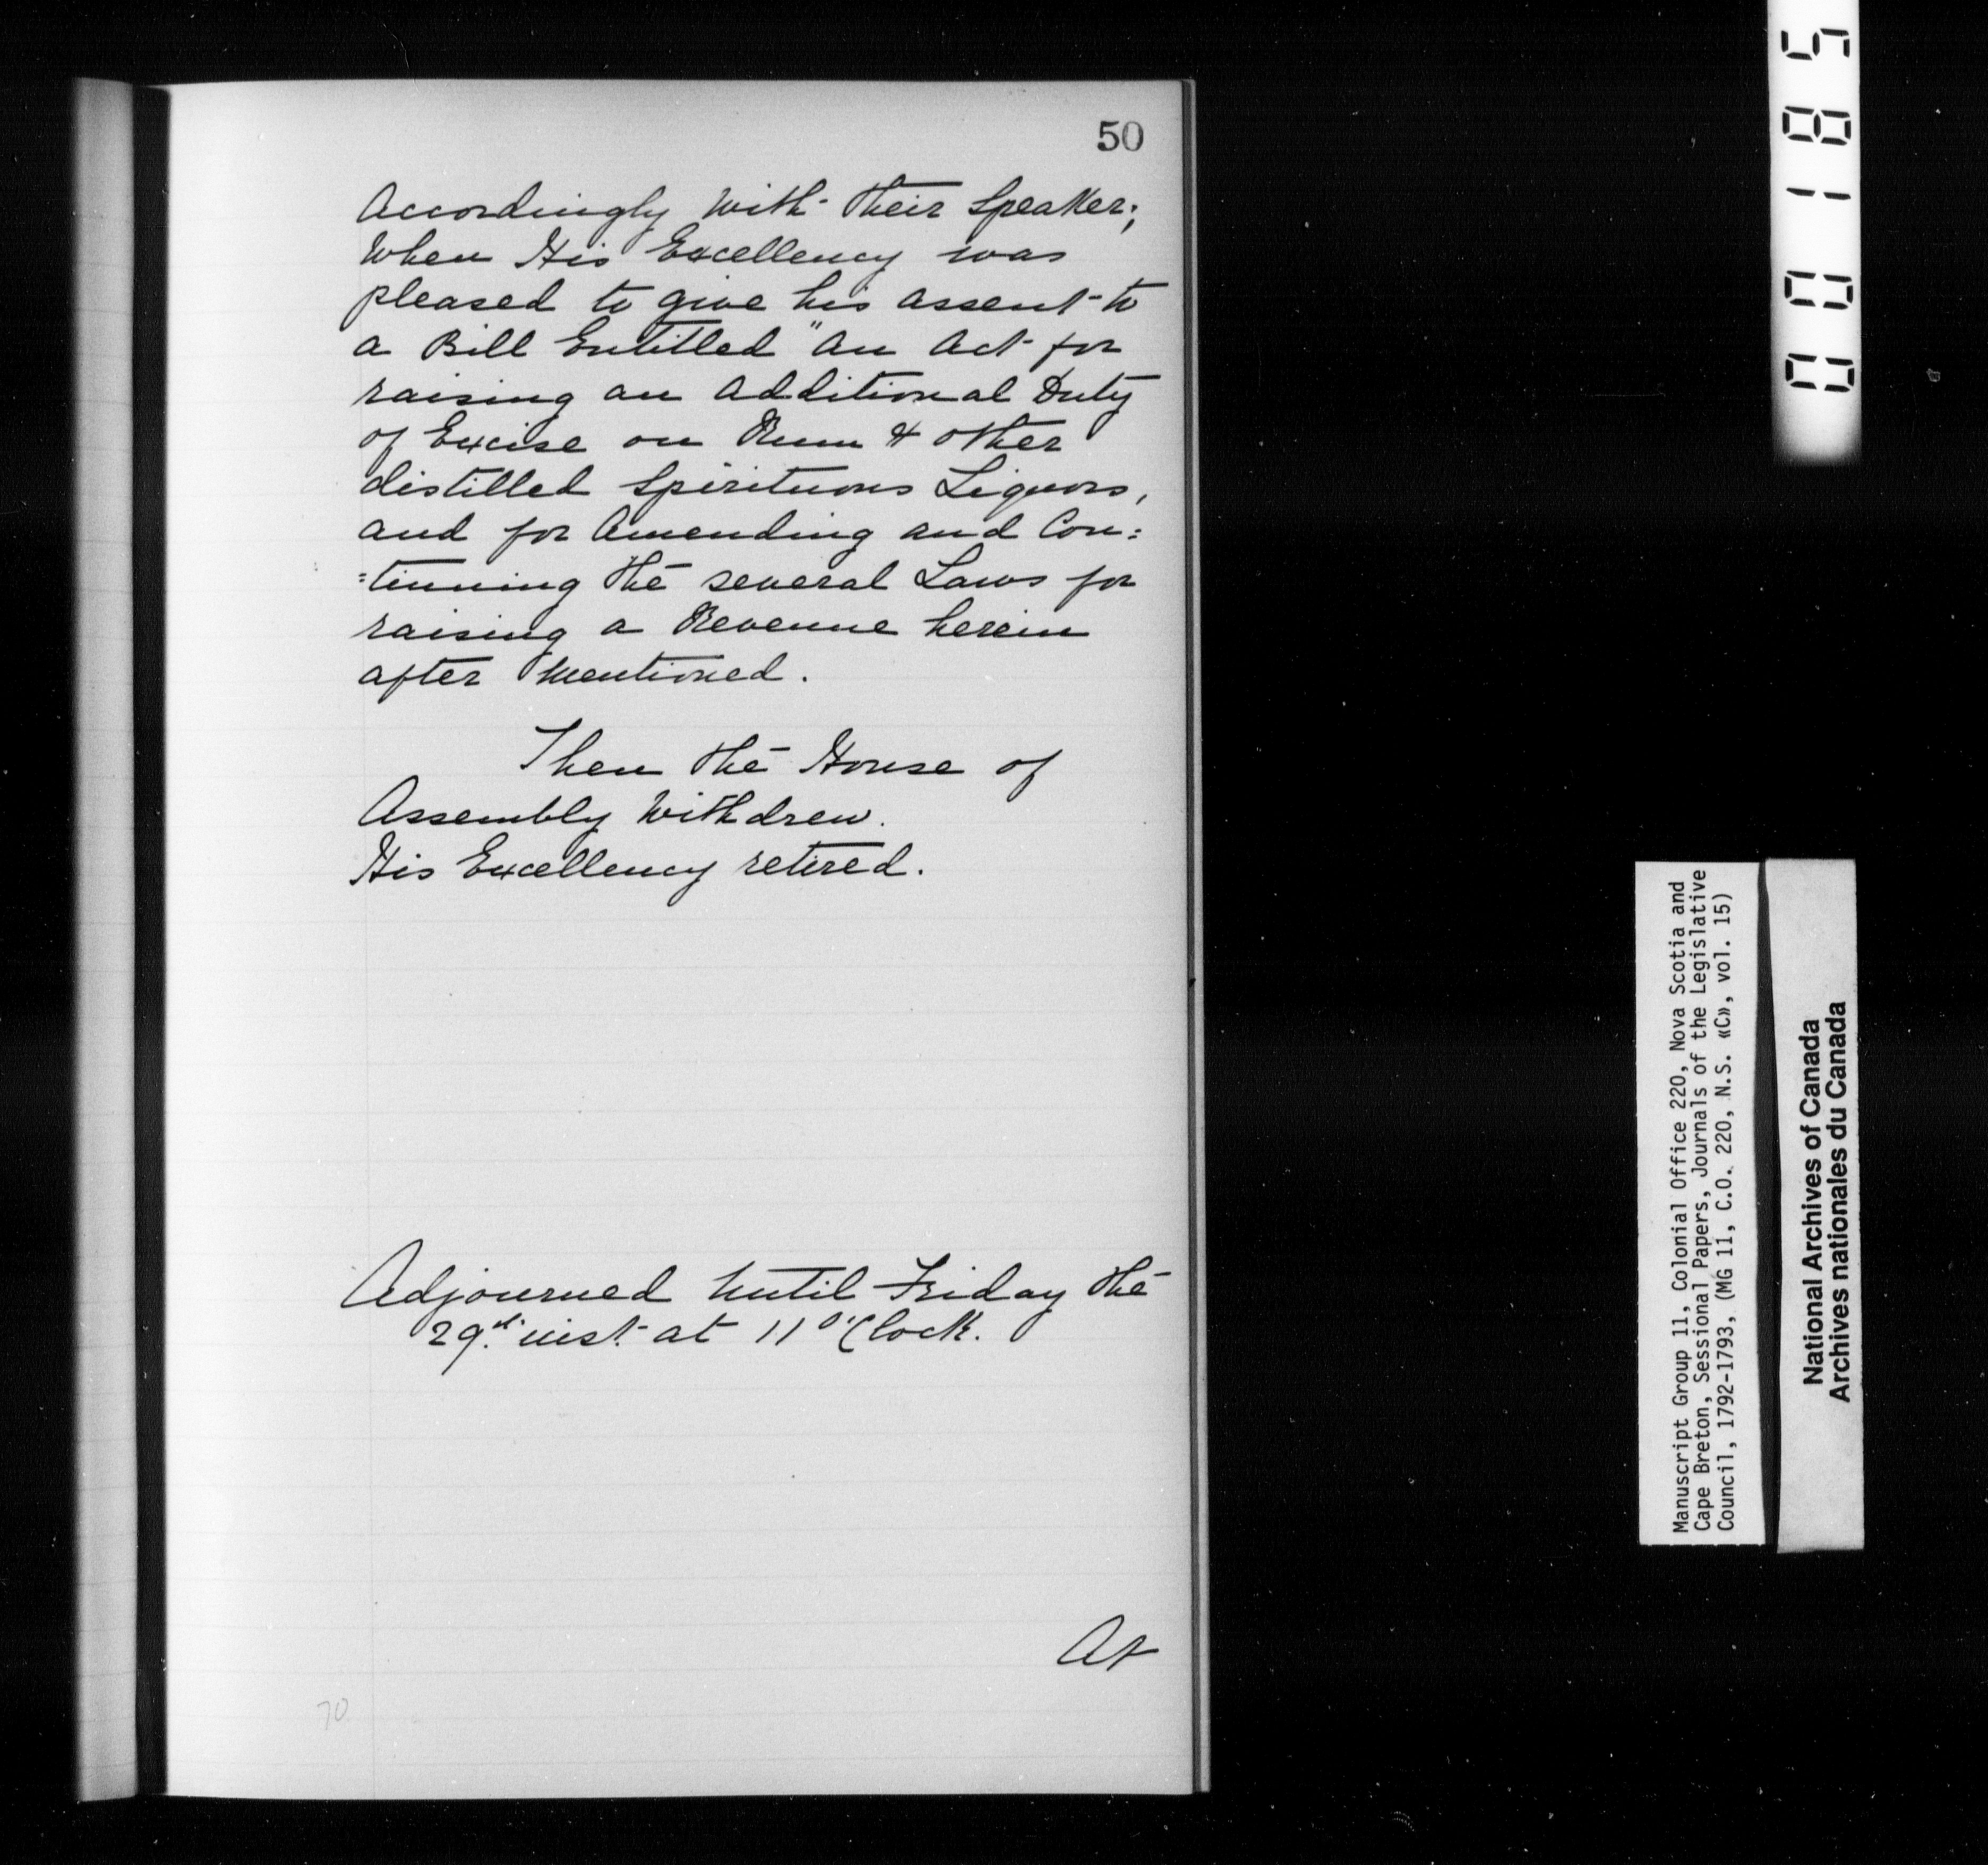 50
Accordingly with their Speaker;
When His Excellency was
pleased to give his assent to
a Bill Entitled "An Act for
raising an Additional Duty
of Excise on Rum & other
distilled Spirituous Liquors,
and for Amending and Con:
:tinuing the several Laws for
raising a Revenue herein
after mentioned.
Then the House of
Assembly Withdrew.
His Excellency retired.
Adjourned until Friday the
29th inst. at 11 O'Clock.
At
70
00185
Manuscript Group 11, Colonial Office 220, Nova Scotia and
Cape Breton, Sessional Papers, Journals of the Legislative
Council, 1792-1793, (MG 11, C.O. 220, N.S. «C», vol. 15)
National Archives of Canada
Archives nationales du Canada